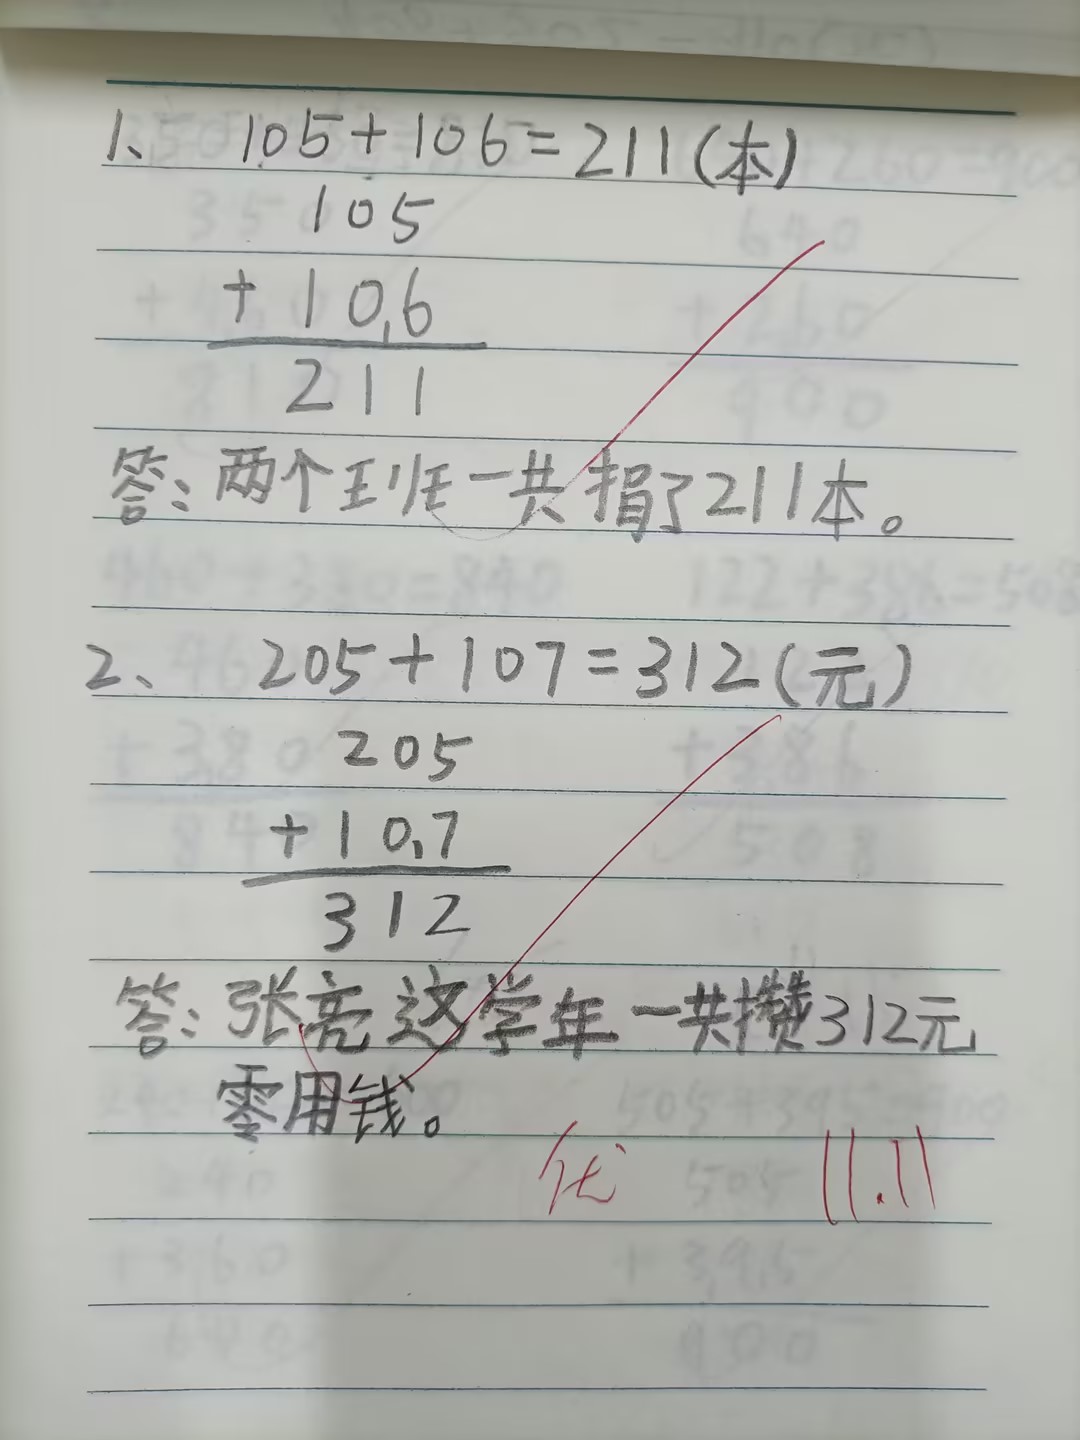 1、 105+106=211(本)
105
+ 106
211
答：两个班一共捐了211本。
2、 205+107=312(元)
205
+107
312
答：张亮这学年一共攒312元
零用钱。
优 11.11